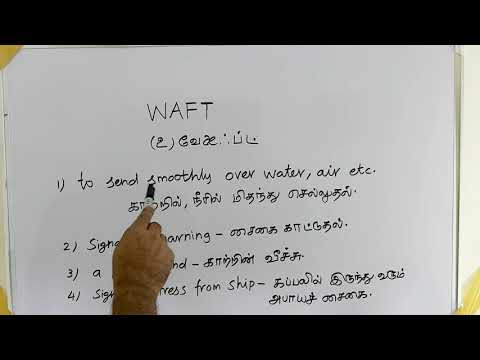 WAFT
(உ) வேஃப்ட்
1) to send smoothly over water, air etc.
காற்றில், நீரில் மிதந்து செல்லுதல்.
2) Sign arning - சைகை காட்டுதல்.
3) a nd - காற்றின் வீச்சு.
4) Sign ress from ship - கப்பலில் இருந்து வரும்
அபாயச் சைகை.